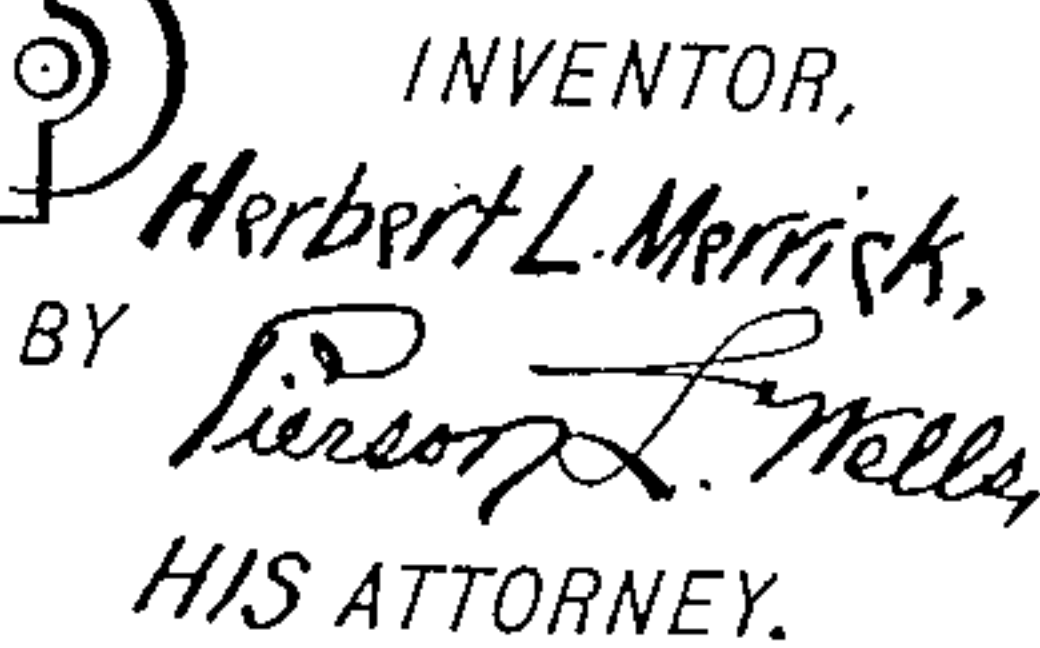 INVENTOR,
Herbert L. Merrick,
BY
Pierson L. Wells,
HIS ATTORNEY.